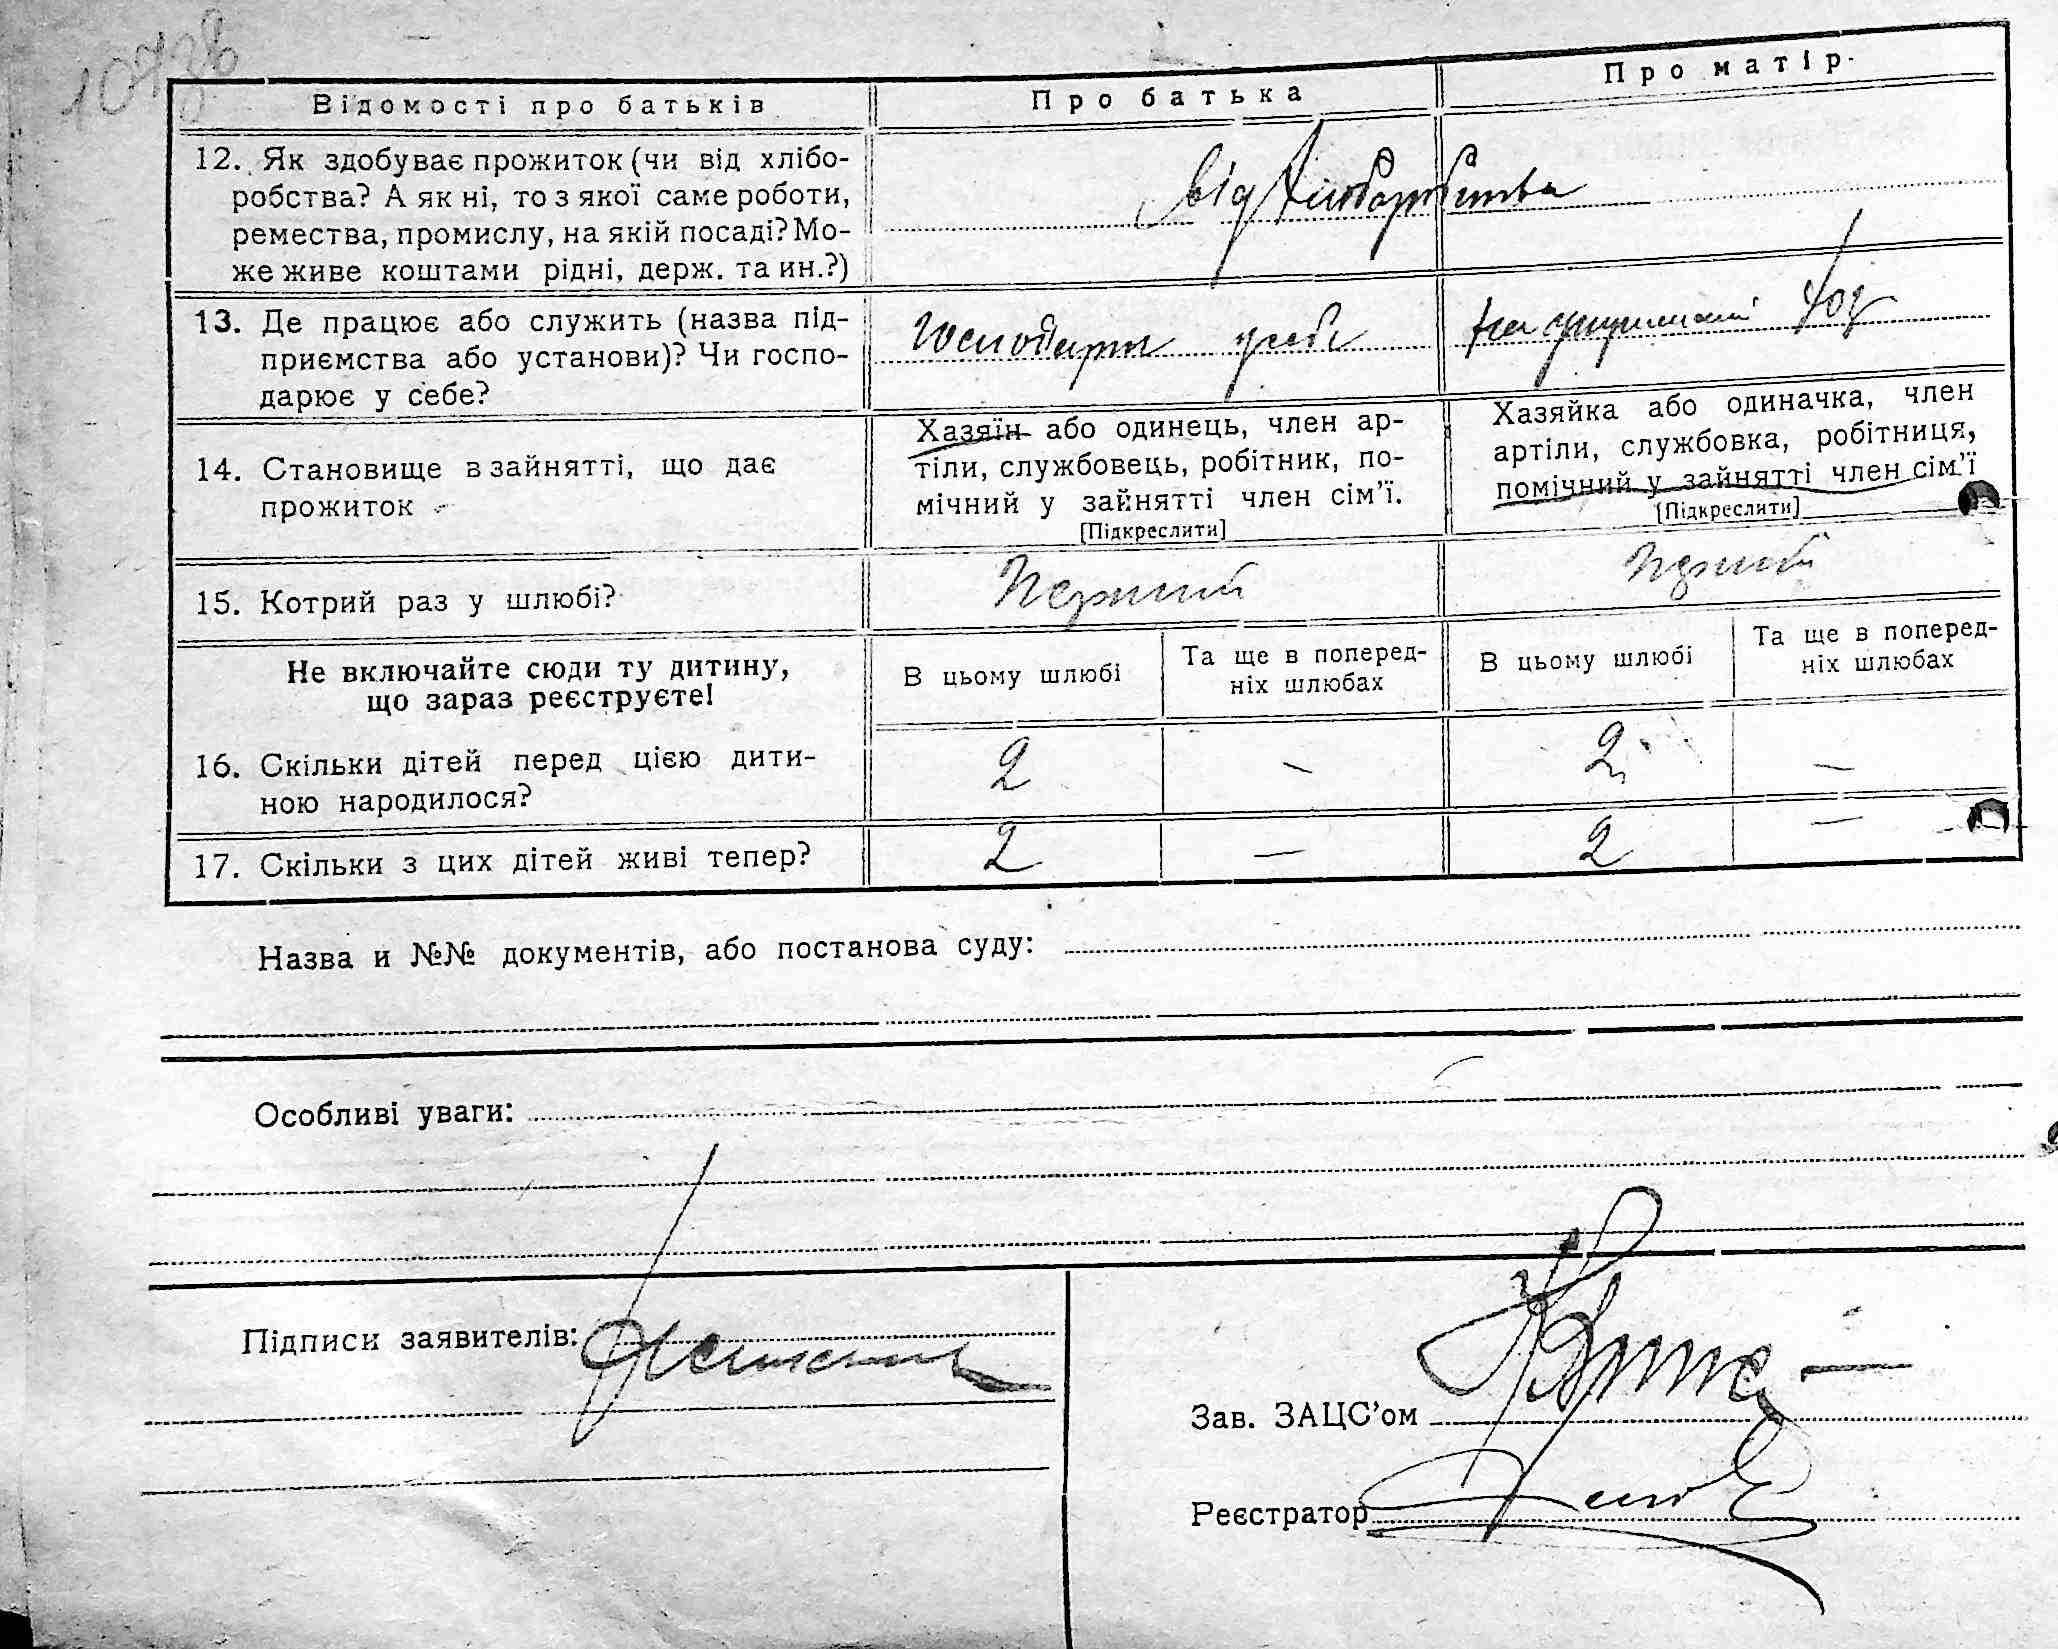 Відомості про батьків
Про батька
Про матір.
12. Як здобуває прожиток (чи від хлібо-
робства? А як ні, то з якої саме роботи,
ремества, промислу, на якій посаді? Мо-
же живе коштами рідні, держ. та ин.?)
від хліборобства
13. Де працює або служить (назва під-
приємства або установи)? Чи госпо-
дарює у себе?
Господарює у себе
на утриманні
14. Становище в зайнятті, що дає
прожиток
Хазяїн або одинець, член ар-
тіли, службовець, робітник, по-
мічний у зайнятті член сім'ї.
[Підкреслити]
Хазяйка або одиначка, член
артіли, службовка, робітниця,
помічний у зайнятті член сім'ї
[Підкреслити]
15. Котрий раз у шлюбі?
Перший
Перший
Не включайте сюди ту дитину,
що зараз реєструєте!
В цьому шлюбі
Та ще в поперед-
ніх шлюбах
В цьому шлюбі
Та ще в поперед-
ніх шлюбах
16. Скільки дітей перед цією дити-
ною народилося?
2 — 2 —
17. Скільки з цих дітей живі тепер?
2 — 2 —
Назва и №№ документів, або постанова суду:
Особливі уваги:
Підписи заявителів:
Зав. ЗАЦС'ом
Реєстратор